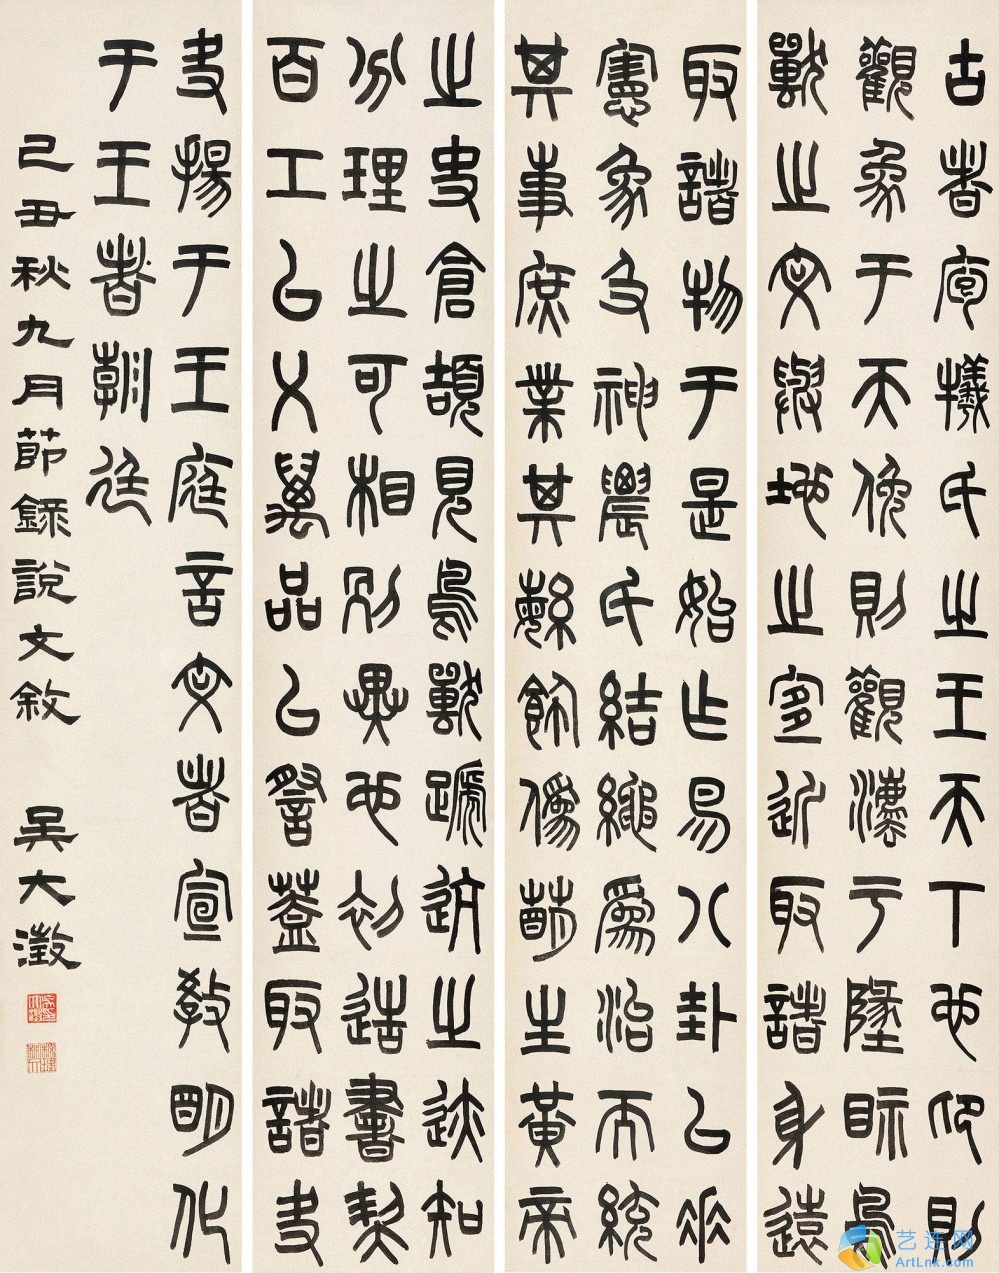 古者庖犧氏之王天下也仰則
觀象于天俛則觀灋于墬眂鳥
獸之文與地之宜近取諸身遠
取諸物于是始作易八卦以垂
憲象及神農氏結繩爲治而統
其事庶業其繁飾僞萌生黃帝
之史倉頡見鳥獸蹏迒之迹知
分理之可相別異也初造書契
百工以乂萬品以詧蓋取諸夬
夬揚于王庭言文者宣教明化
于王者朝廷
己丑秋九月節錄說文敘 吳大澂
艺连网
ArtLnk.com